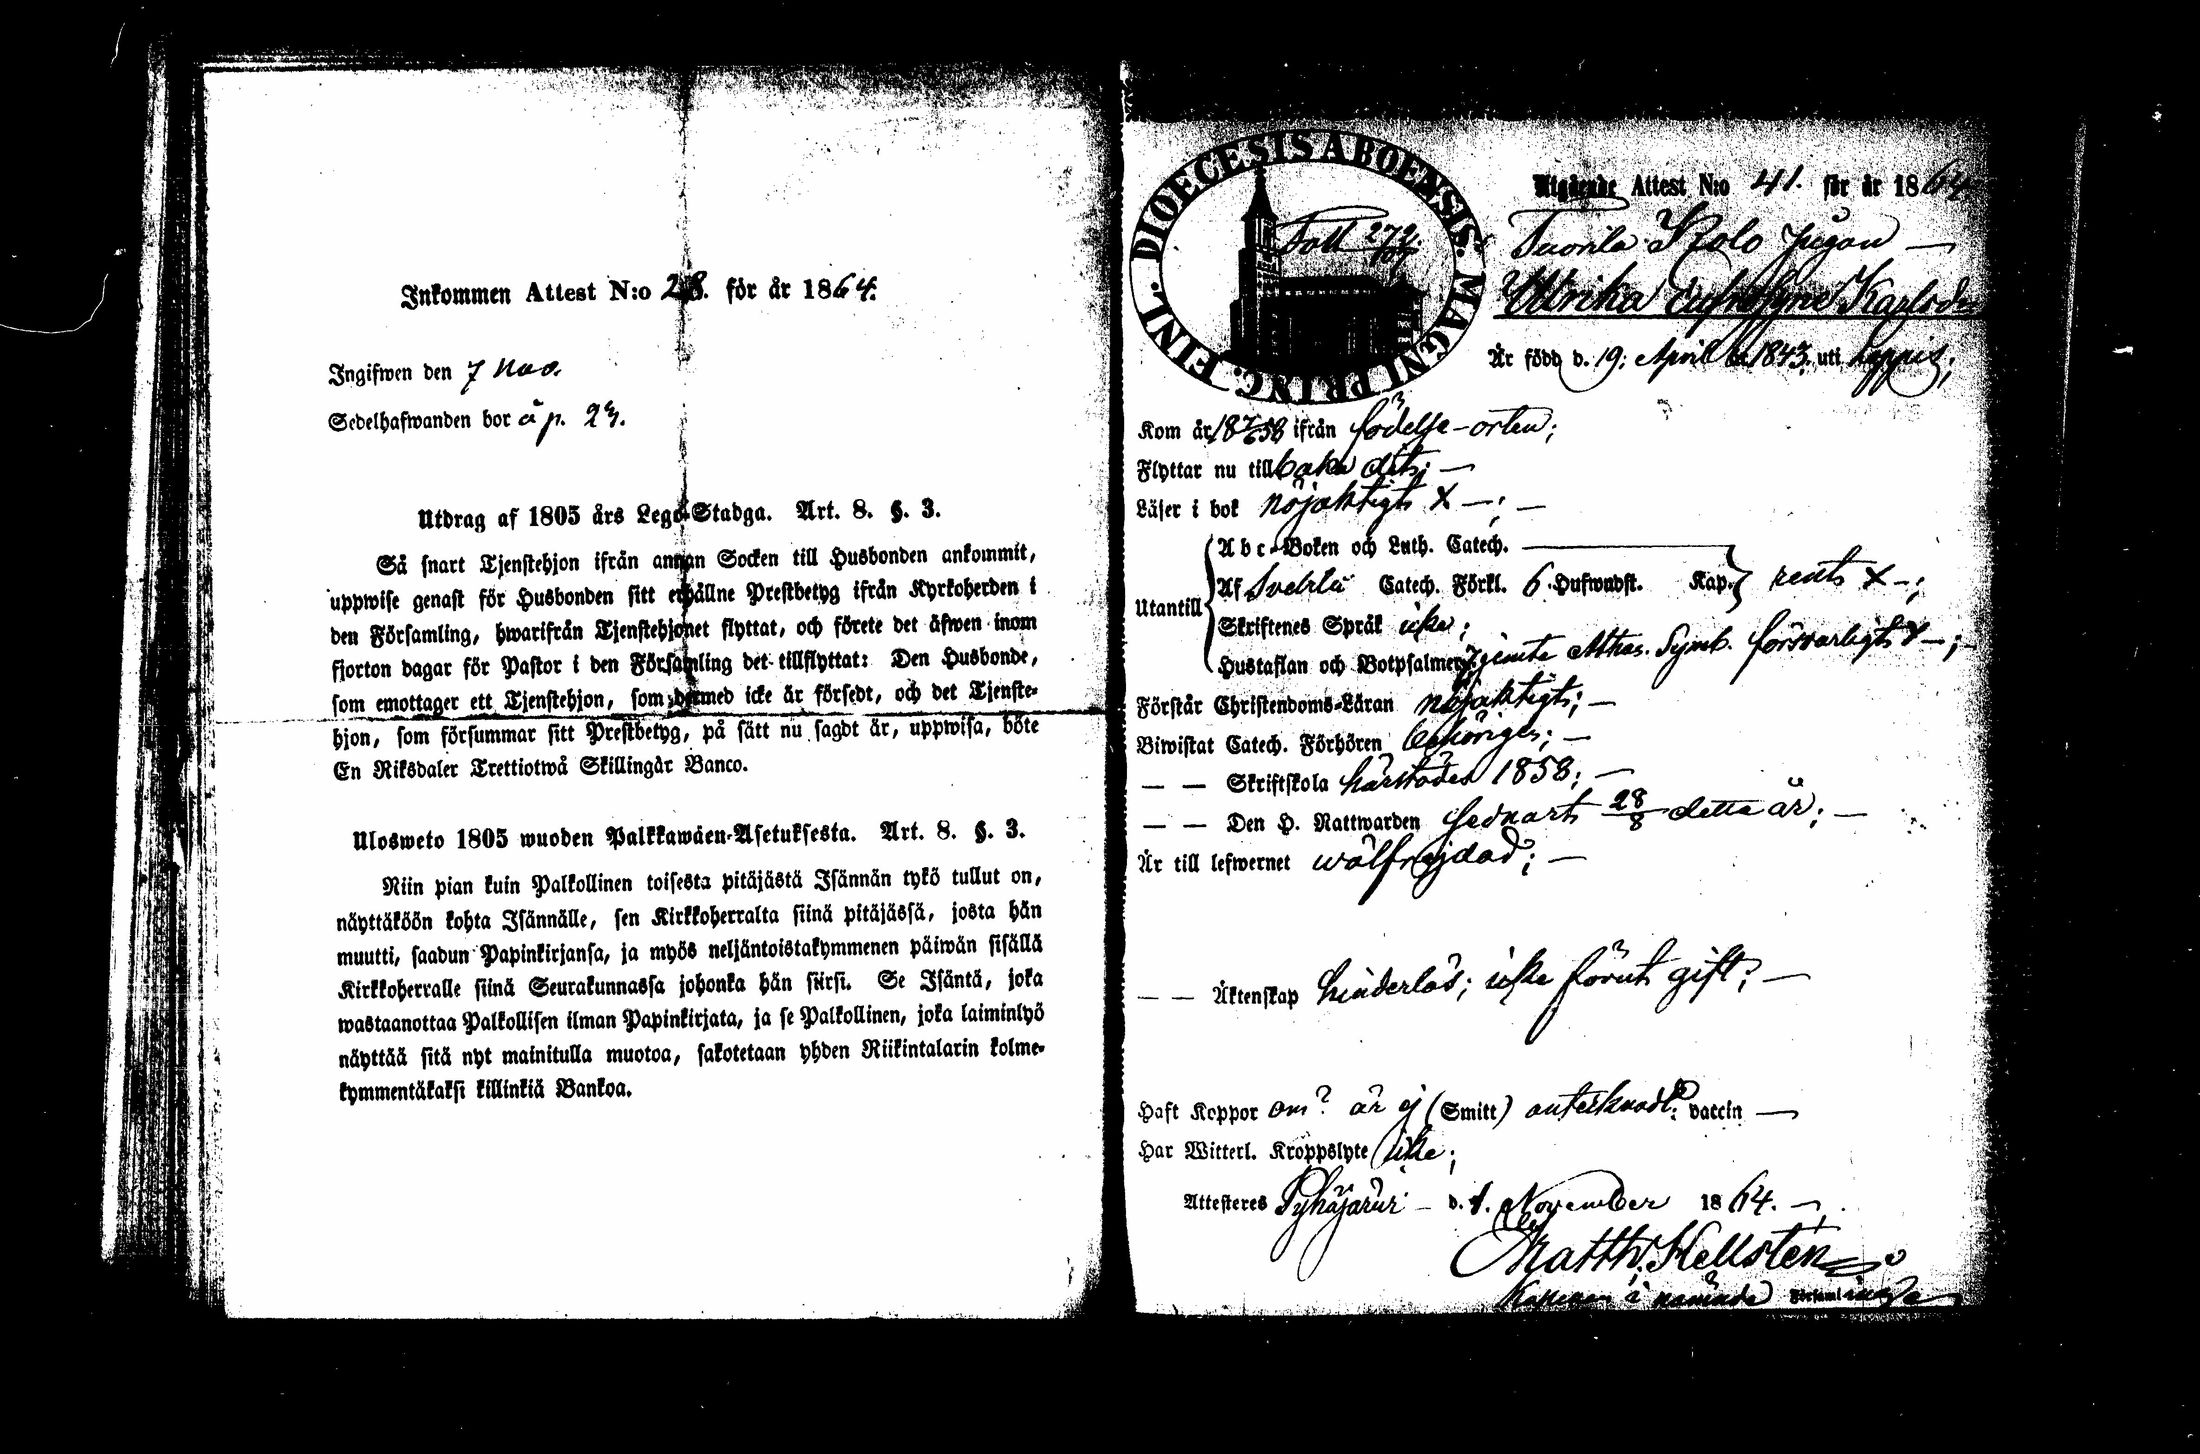 Inkommen Attest N:o 28. för år 1864.
Ingifwen den 7 Nov.
Sedelhafwanden bor å p. 23.
Utdrag af 1805 års Lego-Stadga. Art. 8. §. 3.
Så snart Tjenstehjon ifrån annan Socken till Husbonden ankommit,
uppwise genast för Husbonden sitt erhållne Prestbetyg ifrån Kyrkoherden i
den Församling, hwarifrån Tjenstehjonet flyttat, och förete det äfwen inom
fjorton dagar för Pastor i den Församling det tillflyttat: Den Husbonde,
som emottager ett Tjenstehjon, som dermed icke är försedt, och det Tjenste-
hjon, som försummar sitt Prestbetyg, på sätt nu sagdt är, uppwisa, böte
En Riksdaler Trettiotwå Skillingar Banco.
Ulosweto 1805 wuoden Palkkawäen-Asetuksesta. Art. 8. §. 3.
Niin pian kuin Palkollinen toisesta pitäjästä Isännän tykö tullut on,
näyttäköön kohta Isännälle, sen Kirkkoherralta siinä pitäjässä, josta hän
muutti, saadun Papinkirjansa, ja myös neljäntoistakymmenen päiwän sisällä
Kirkkoherralle siinä Seurakunnassa johonka hän siirsi. Se Isäntä, joka
wastaanottaa Palkollisen ilman Papinkirjata, ja se Palkollinen, joka laiminlyö
näyttää sitä nyt mainitulla muotoa, sakotetaan yhden Riikintalarin kolme-
kymmentäkaksi killinkiä Bankoa.
DIOECESIS ABOENSIS. MAGNI PRINC. FINL.
Foll 272.
Utgående Attest N:o 41. för år 1864
Tuorila Kolo pigan —
Ulrika Eufrosyne Karlsdr
Är född d. 19: April år 1843. uti Lappis;
Kom år 18 7/6 58 ifrån födelse-orten;
Flyttar nu tillbaka dit; —
Läser i bok nöjaktigt x —; —
Utantill
Abc-Boken och Luth. Catech.
Af Svebelii Catech. Förkl. 6. Hufwudst. Kap. rent x —;
Skriftenes Språk icke;
Hustaflan och Botpsalmer jemte Athas. Symb. försvarligt x —; —
Förstår Christendoms-Läran nöjaktigt; —
Biwistat Catech. Förhören behörigen; —
— — Skriftskola härstädes 1858; —
— — Den H. Nattwarden sednast 28/8 detta år; —
Är till lefwernet wälfrejdad; —
— — Äktenskap hinderlös; icke förut gift; —
Haft Koppor om? är ej (Smitt) antecknadt; vaccin —
Har Witterl. Kroppslyte icke;
Attesteres Pyhäjärvi — d. 1. November 1864. —
Matth. Hellstén
i nämnde Församling